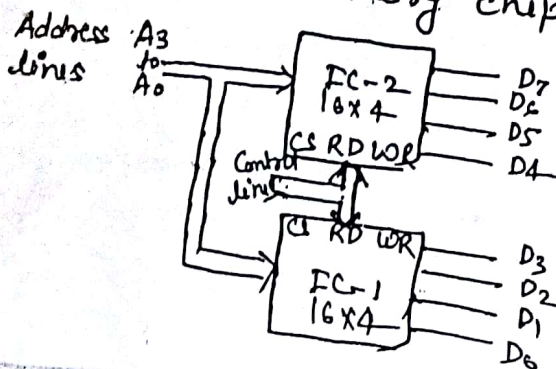 ory chip
Address A3
lines to
A0
IC-2
16X4
CS RD WR
D7
D6
D5
D4
Control
lines
CS RD WR
IC-1
16X4
D3
D2
D1
D0